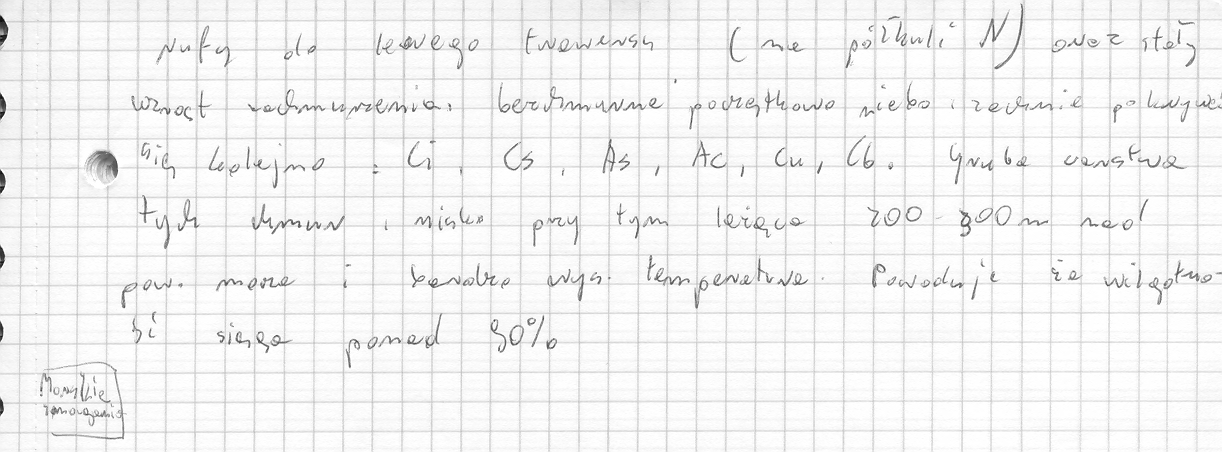 rufy do lewego trawersu (na półkuli N) oraz stały
wzrost zachmurzenia. bezchmurne początkowo niebo, zacznie pokrywać
się kolejno: Ci, Cs, As, Ac, Cu, Cb. Gruba warstwa
tych chmur, nisko przy tym leżąca 200-300m nad
pow. morza i bardzo wys. temperatura. Powoduje że wilgotno-
ść sięga ponad 90%
Morskie